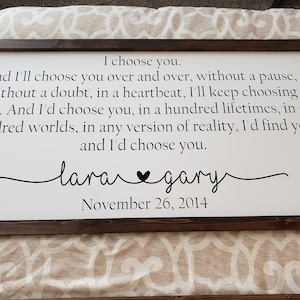 I choose you.
I'll choose you over and over, without a pause,
without a doubt, in a heartbeat, I'll keep choosing
And I'd choose you, in a hundred lifetimes, in
worlds, in any version of reality, I'd find
and I'd choose you.
lara gary
November 26, 2014